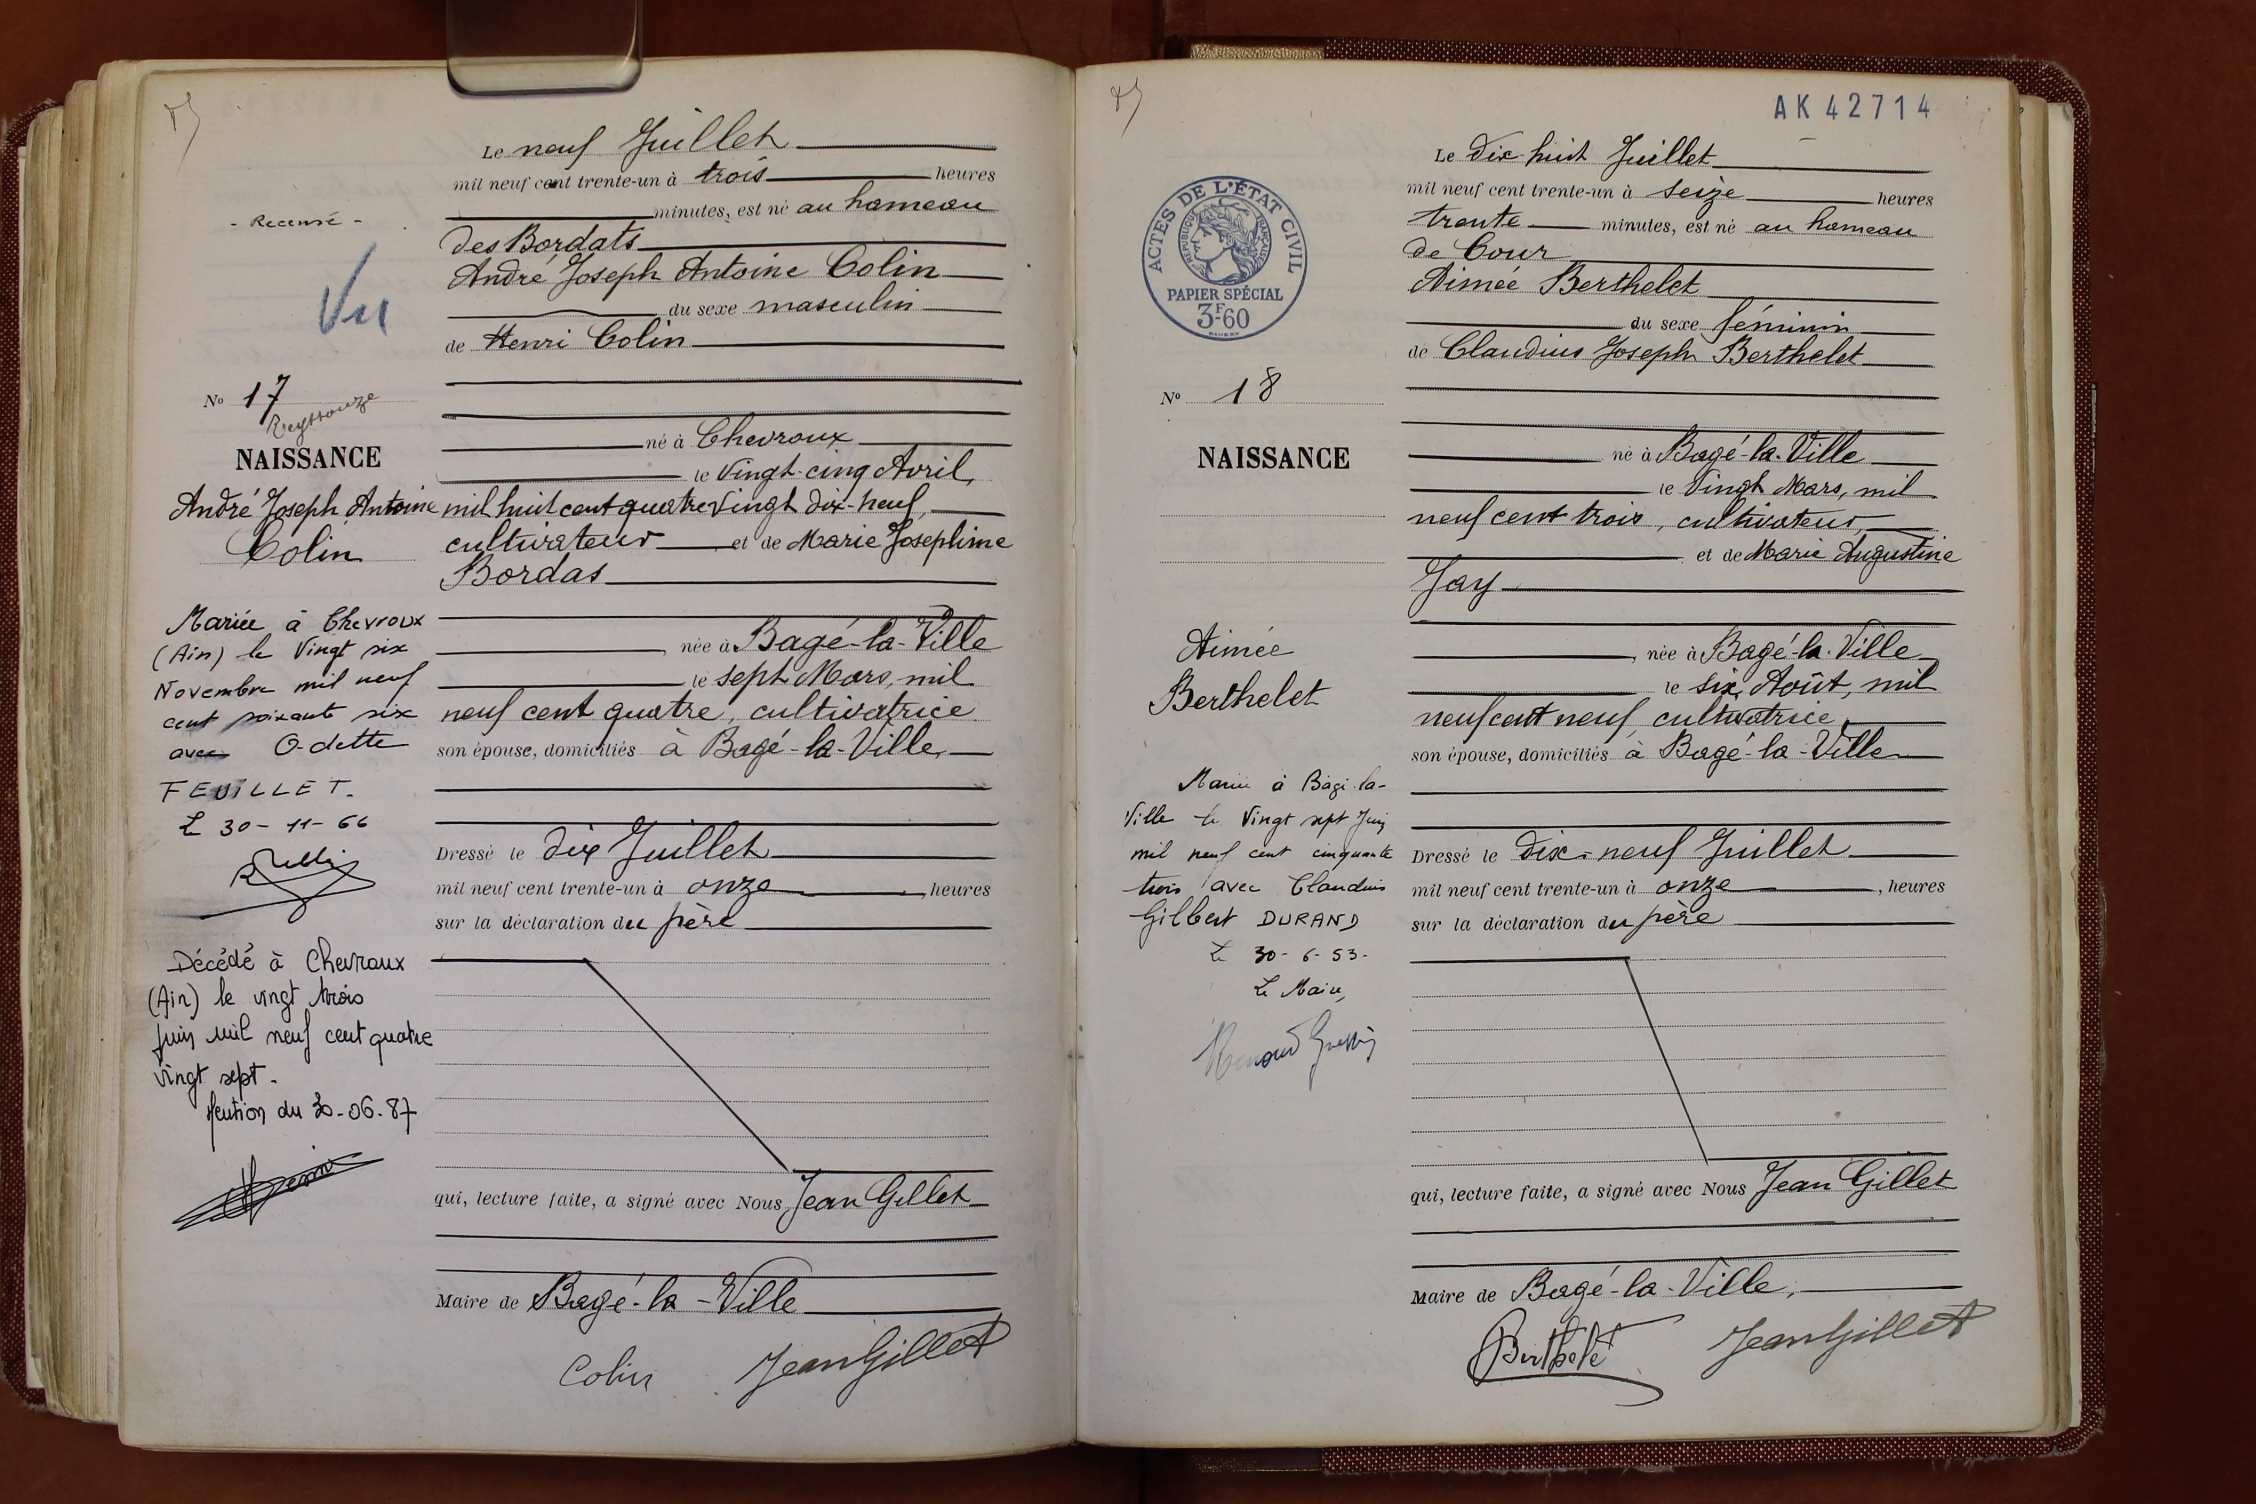 Le neuf Juillet
mil neuf cent trente-un à trois heures
minutes, est né au hameau
des Bordats
André Joseph Antoine Colin
du sexe masculin
de Henri Colin
né à Chevroux
le vingt-cinq Avril,
mil huit cent quatre vingt dix-neuf,
cultivateur et de Marie Joséphine
Bordas
née à Bagé-la-Ville
le sept Mars, mil
neuf cent quatre, cultivatrice
son épouse, domiciliés à Bagé-la-Ville,
Dressé le dix Juillet
mil neuf cent trente-un à onze heures
sur la déclaration du père
qui, lecture faite, a signé avec Nous, Jean Gillet
Maire de Bagé-la-Ville
Colin Jean Gillet
- Recensé -
Vu
No 17
Reyssouze
NAISSANCE
André Joseph Antoine
Colin
Mariée à Chevroux
(Ain) le Vingt six
Novembre mil neuf
cent soixante six
avec Odette
FEUILLET.
Le 30-11-66
Décédé à Chevroux
(Ain) le vingt trois
juin mil neuf cent quatre
vingt sept.
Mention du 30-06-87
AK 42714
Le dix-huit Juillet
mil neuf cent trente-un à seize heures
trente minutes, est né au hameau
de Cour
Aimée Berthelet
du sexe féminin
de Claudius Joseph Berthelet
né à Bagé-la-Ville
le vingt Mars, mil
neuf cent trois, cultivateur,
et de Marie Augustine
Jay
née à Bagé-la-Ville
le six Août, mil
neuf cent neuf, cultivatrice,
son épouse, domiciliés à Bagé-la-Ville
Dressé le dix-neuf Juillet
mil neuf cent trente-un à onze, heures
sur la déclaration du père
qui, lecture faite, a signé avec Nous Jean Gillet
Maire de Bagé-la-Ville,
Berthelet Jean Gillet
ACTES DE L'ÉTAT CIVIL
RÉPUBLIQUE FRANÇAISE
PAPIER SPÉCIAL
3F60
No 18
NAISSANCE
Aimée
Berthelet
Mariée à Bagé-la-
Ville le Vingt sept Juin
mil neuf cent cinquante
trois avec Claudius
Gilbert DURAND
Le 30-6-53-
Le Maire,